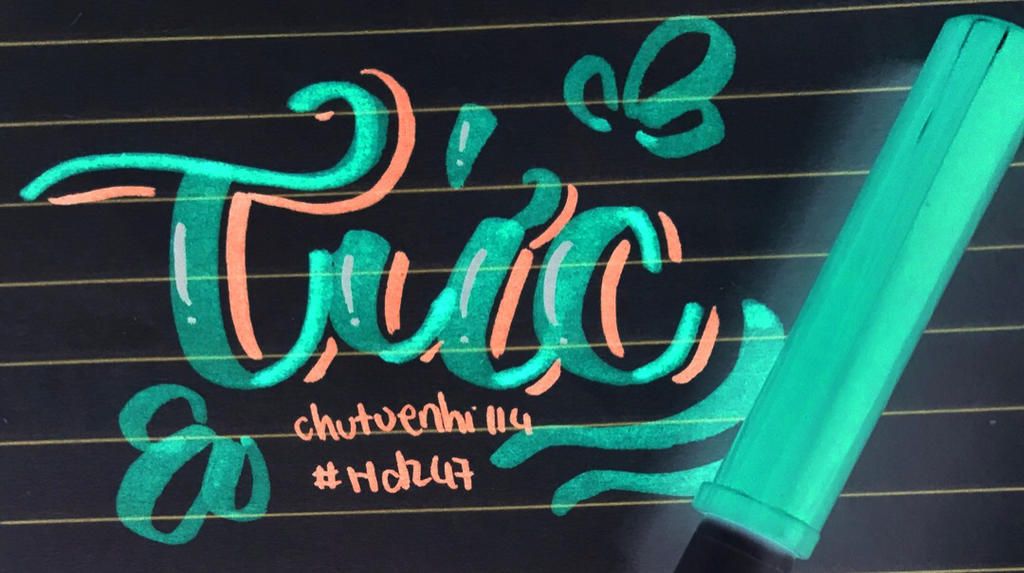 Tức
chutuenhi114
#Hdz47